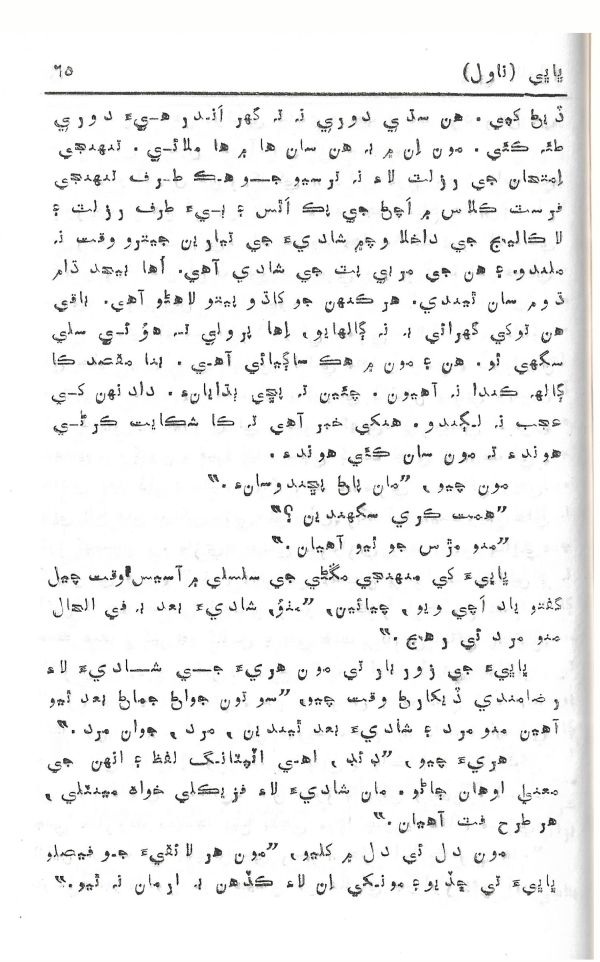 پاپي (ناول) ٦٥
ڏيڻ کپي. هن سڌي دوري نه ته گهر اندر هيءَ دوري
طئه ڪئي. مون اِن ۾ به هن سان ها ۾ ها ملائي. تنهنجي
اِمتحان جي رزلٽ لاءِ نه ترسيو جو هڪ طرف تنهنجي
فرسٽ ڪلاس ۾ اَچڻ جي پڪ اَٿس ۽ ٻيءَ طرف رزلٽ ۽
لا ڪاليج جي داخلا وچ ۾ شاديءَ جي تيارين جيترو وقت نه
ملندو. ۽ هن جي مرابي پٽ جي شادي آهي. اُها بيحد ڌام
ڌوم سان ٿيندي. هر ڪنهن جو کاڌو پيتو لاهڻو آهي. باقي
هن توکي گهرائي به نه ڳالهايو, اِها پرولي ته هوُ ئي سلي
سگهي ٿو. هن ۽ مون ۾ هڪ ساڳيائي آهي. بنا مقصد ڪا
ڳالهه ڪندا نه آهيون. چئين ته پڇي ٻڌايانءِ. دادنهن کي
عجب نه لڳندو. هنکي خبر آهي ته ڪا شڪايت ڪرڻي
هوندءِ ته مون سان ڪئي هوندءِ.
مون چيو, ”مان پاڻ پڇندوسانءِ.“
”همت ڪري سگهندين؟“
”منو مڙس جو ٿيو آهيان.“
پاپيءَ کي منهنجي مڱڻي جي سلسلي ۾ آسيس وقت چيل
گفتو ياد اَچي ويو, چيائين, ”منوُ, شاديءَ بعد به في الحال
منو مرد ئي رهج.“
پاپيءَ جي زور بار تي مون هريءَ جي شاديءَ لاءِ
رضامندي ڏيکارڻ وقت چيو, ”سو تون جواڻ جماڻ بعد ٿيو
آهين منو مرد ۽ شاديءَ بعد ٿيندين, مرد, جوان مرد.“
هريءَ چيو, ”ڊئڊ, اهي اٽپٽانگ لفظ ۽ انهن جي
معنيٰ اوهان ڄاڻو. مان شاديءَ لاءِ فزيڪلي خواهه مينٽلي,
هر طرح فٽ آهيان.“
مون دل ئي دل ۾ کليو, ”مون هر لائقيءَ جو فيصلو
پاپيءَ تي ڇڏيو ۽ مونکي اِن لاءِ ڪڏهن به ارمان نه ٿيو.“